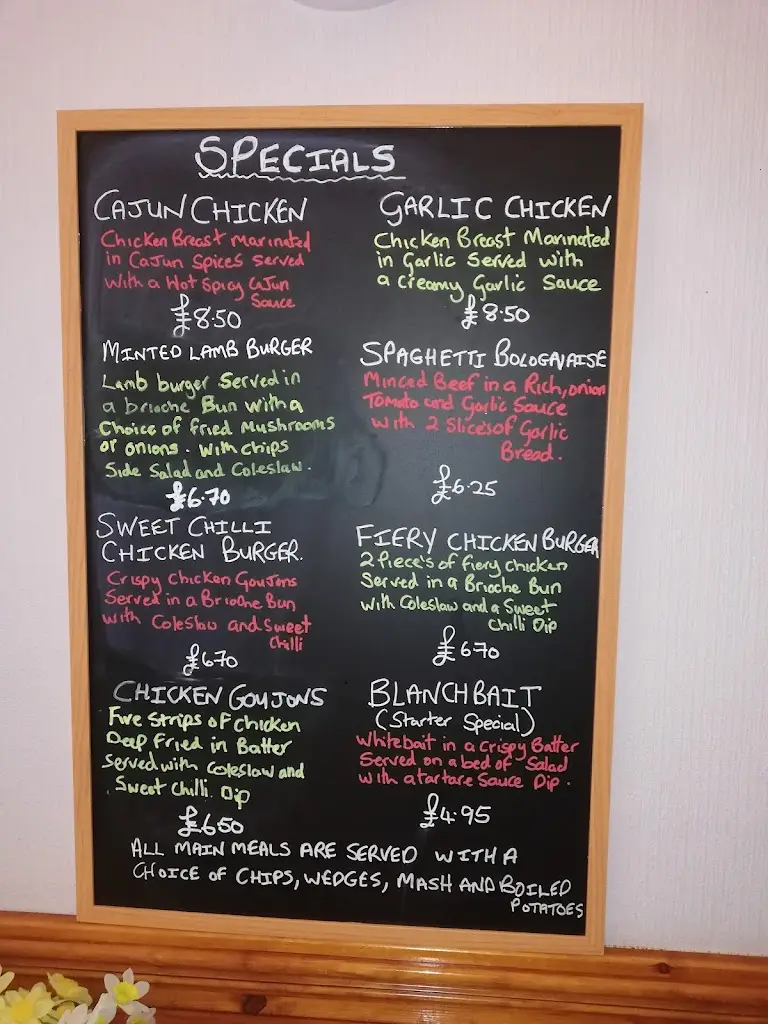 SPECIALS
CAJUN CHICKEN
Chicken Breast marinated
in Cajun Spices Served
with a Hot Spicy Cajun
Sauce
£8.50
GARLIC CHICKEN
Chicken Breast Marinated
in Garlic Served with
a creamy Garlic Sauce
£8.50
MINTED LAMB BURGER
Lamb burger Served in
a brioche Bun with a
Choice of fried Mushrooms
or onions. with chips
Side Salad and Coleslaw.
£6.70
SPAGHETTI BOLOGNAISE
Minced Beef in a Rich, onion
Tomato and Garlic Sauce
with 2 Slices of Garlic
Bread.
£6.25
SWEET CHILLI
CHICKEN BURGER.
Crispy Chicken Goujons
Served in a Brioche Bun
with Coleslaw and Sweet
Chilli
£6.70
FIERY CHICKEN BURGER
2 Piece's of fiery chicken
Served in a Brioche Bun
with Coleslaw and a Sweet
Chilli Dip
£6.70
CHICKEN GOUJONS
Five Strips of Chicken
Deep Fried in Batter
Served with Coleslaw and
Sweet Chilli. Dip
£6.50
BLANCHBAIT
(Starter Special)
Whitebait in a crispy Batter
Served on a bed of Salad
with a tartare Sauce Dip.
£4.95
ALL MAIN MEALS ARE SERVED WITH A
CHOICE OF CHIPS, WEDGES, MASH AND BOILED
POTATOES